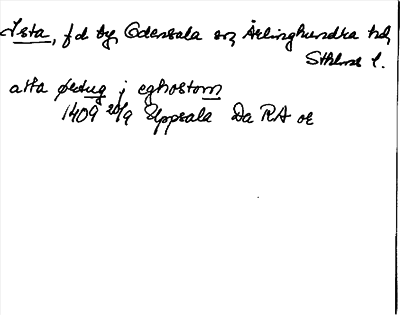 Ista, fd by, Odensala sn, Ärlinghundra hd,
Sthlms l.
atta øvtug j eghostom
1409 20/9 Uppsala Da RA or